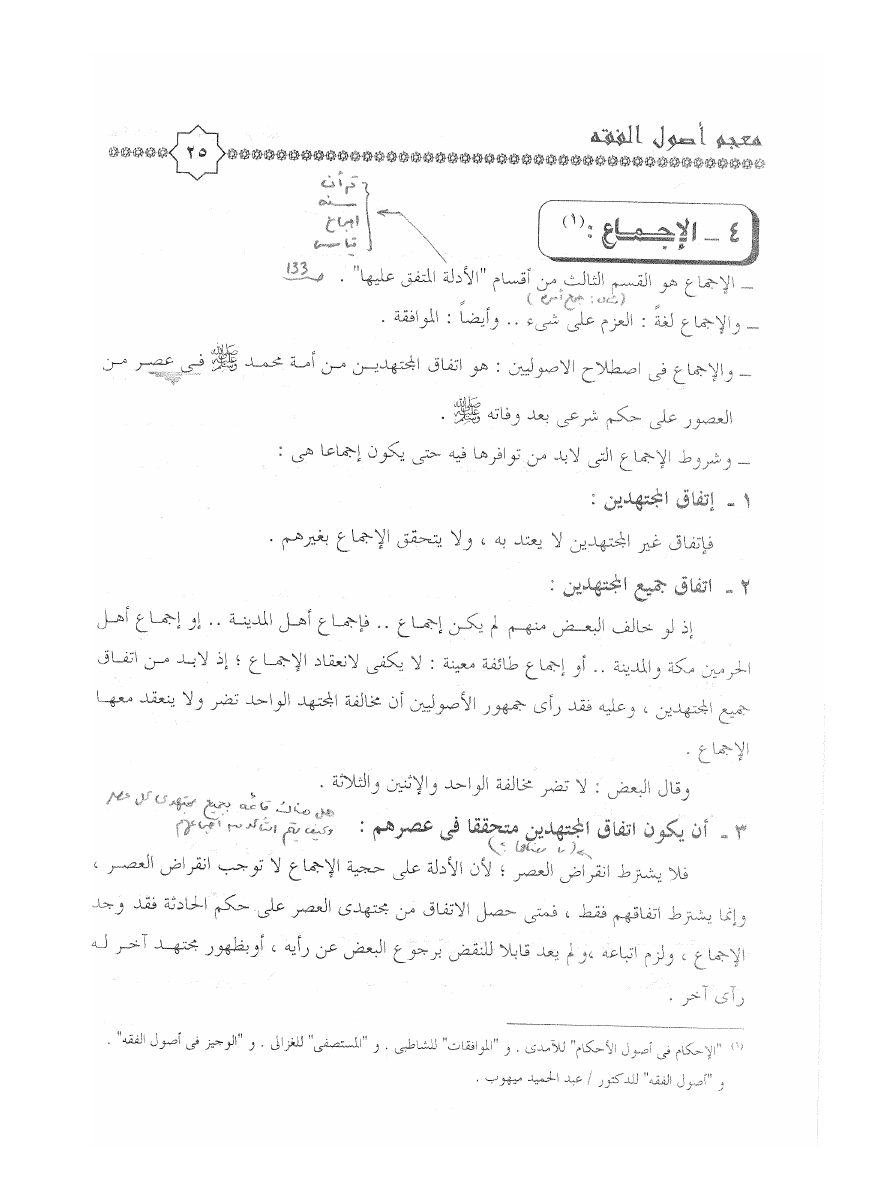 معجم أصول الفقه
٢٥
قرآن
سنه
اجماع
قياس
٤ ــ الإجماع : (١)
ــ الإجماع هو القسم الثالث من أقسام "الأدلة المتفق عليها" .
133
(مثال : جمع أمره )
ــ والإجماع لغةً : العزم على شىء .. وأيضاً : الموافقة .
ــ والإجماع فى اصطلاح الاصوليين : هو اتفاق المجتهدين من أمة محمد ﷺ فى عصر من
العصور على حكم شرعى بعد وفاته ﷺ .
ــ وشروط الإجماع التى لابد من توافرها فيه حتى يكون إجماعا هى :
١ - إتفاق المجتهدين :
فإتفاق غير المجتهدين لا يعتد به ، ولا يتحقق الإجماع بغيرهم .
٢ - اتفاق جميع المجتهدين :
إذ لو خالف البعض منهم لم يكن إجماع .. فإجماع أهل المدينة .. إو إجماع أهل
الحرمين مكة والمدينة .. أو إجماع طائفة معينة : لا يكفى لانعقاد الإجماع ؛ إذ لابد من اتفاق
جميع المجتهدين ، وعليه فقد رأى جمهور الأصوليين أن مخالفة المجتهد الواحد تضر ولا ينعقد معها
الإجماع .
وقال البعض : لا تضر مخالفة الواحد والإثنين والثلاثة .
هل هناك قائمه بجميع مجتهدى كل عصر
وكيف يتم التأكد من اجماعهم
٣ - أن يكون اتفاق المجتهدين متحققا فى عصرهم :
(ما معناها ؟)
فلا يشترط انقراض العصر ؛ لأن الأدلة على حجية الإجماع لا توجب انقراض العصر ،
وإنما يشترط اتفاقهم فقط ، فمتى حصل الاتفاق من مجتهدى العصر على حكم الحادثة فقد وجد
الإجماع ، ولزم اتباعه ،ولم يعد قابلا للنقض برجوع البعض عن رأيه ، أوبظهور مجتهد آخر له
رآى آخر .
(١) "الإحكام فى أصول الأحكام" للآمدى . و "الموافقات" للشاطبى . و "المستصفى" للغزالى . و "الوجيز فى أصول الفقه" .
و "أصول الفقه" للدكتور / عبد الحميد ميهوب .